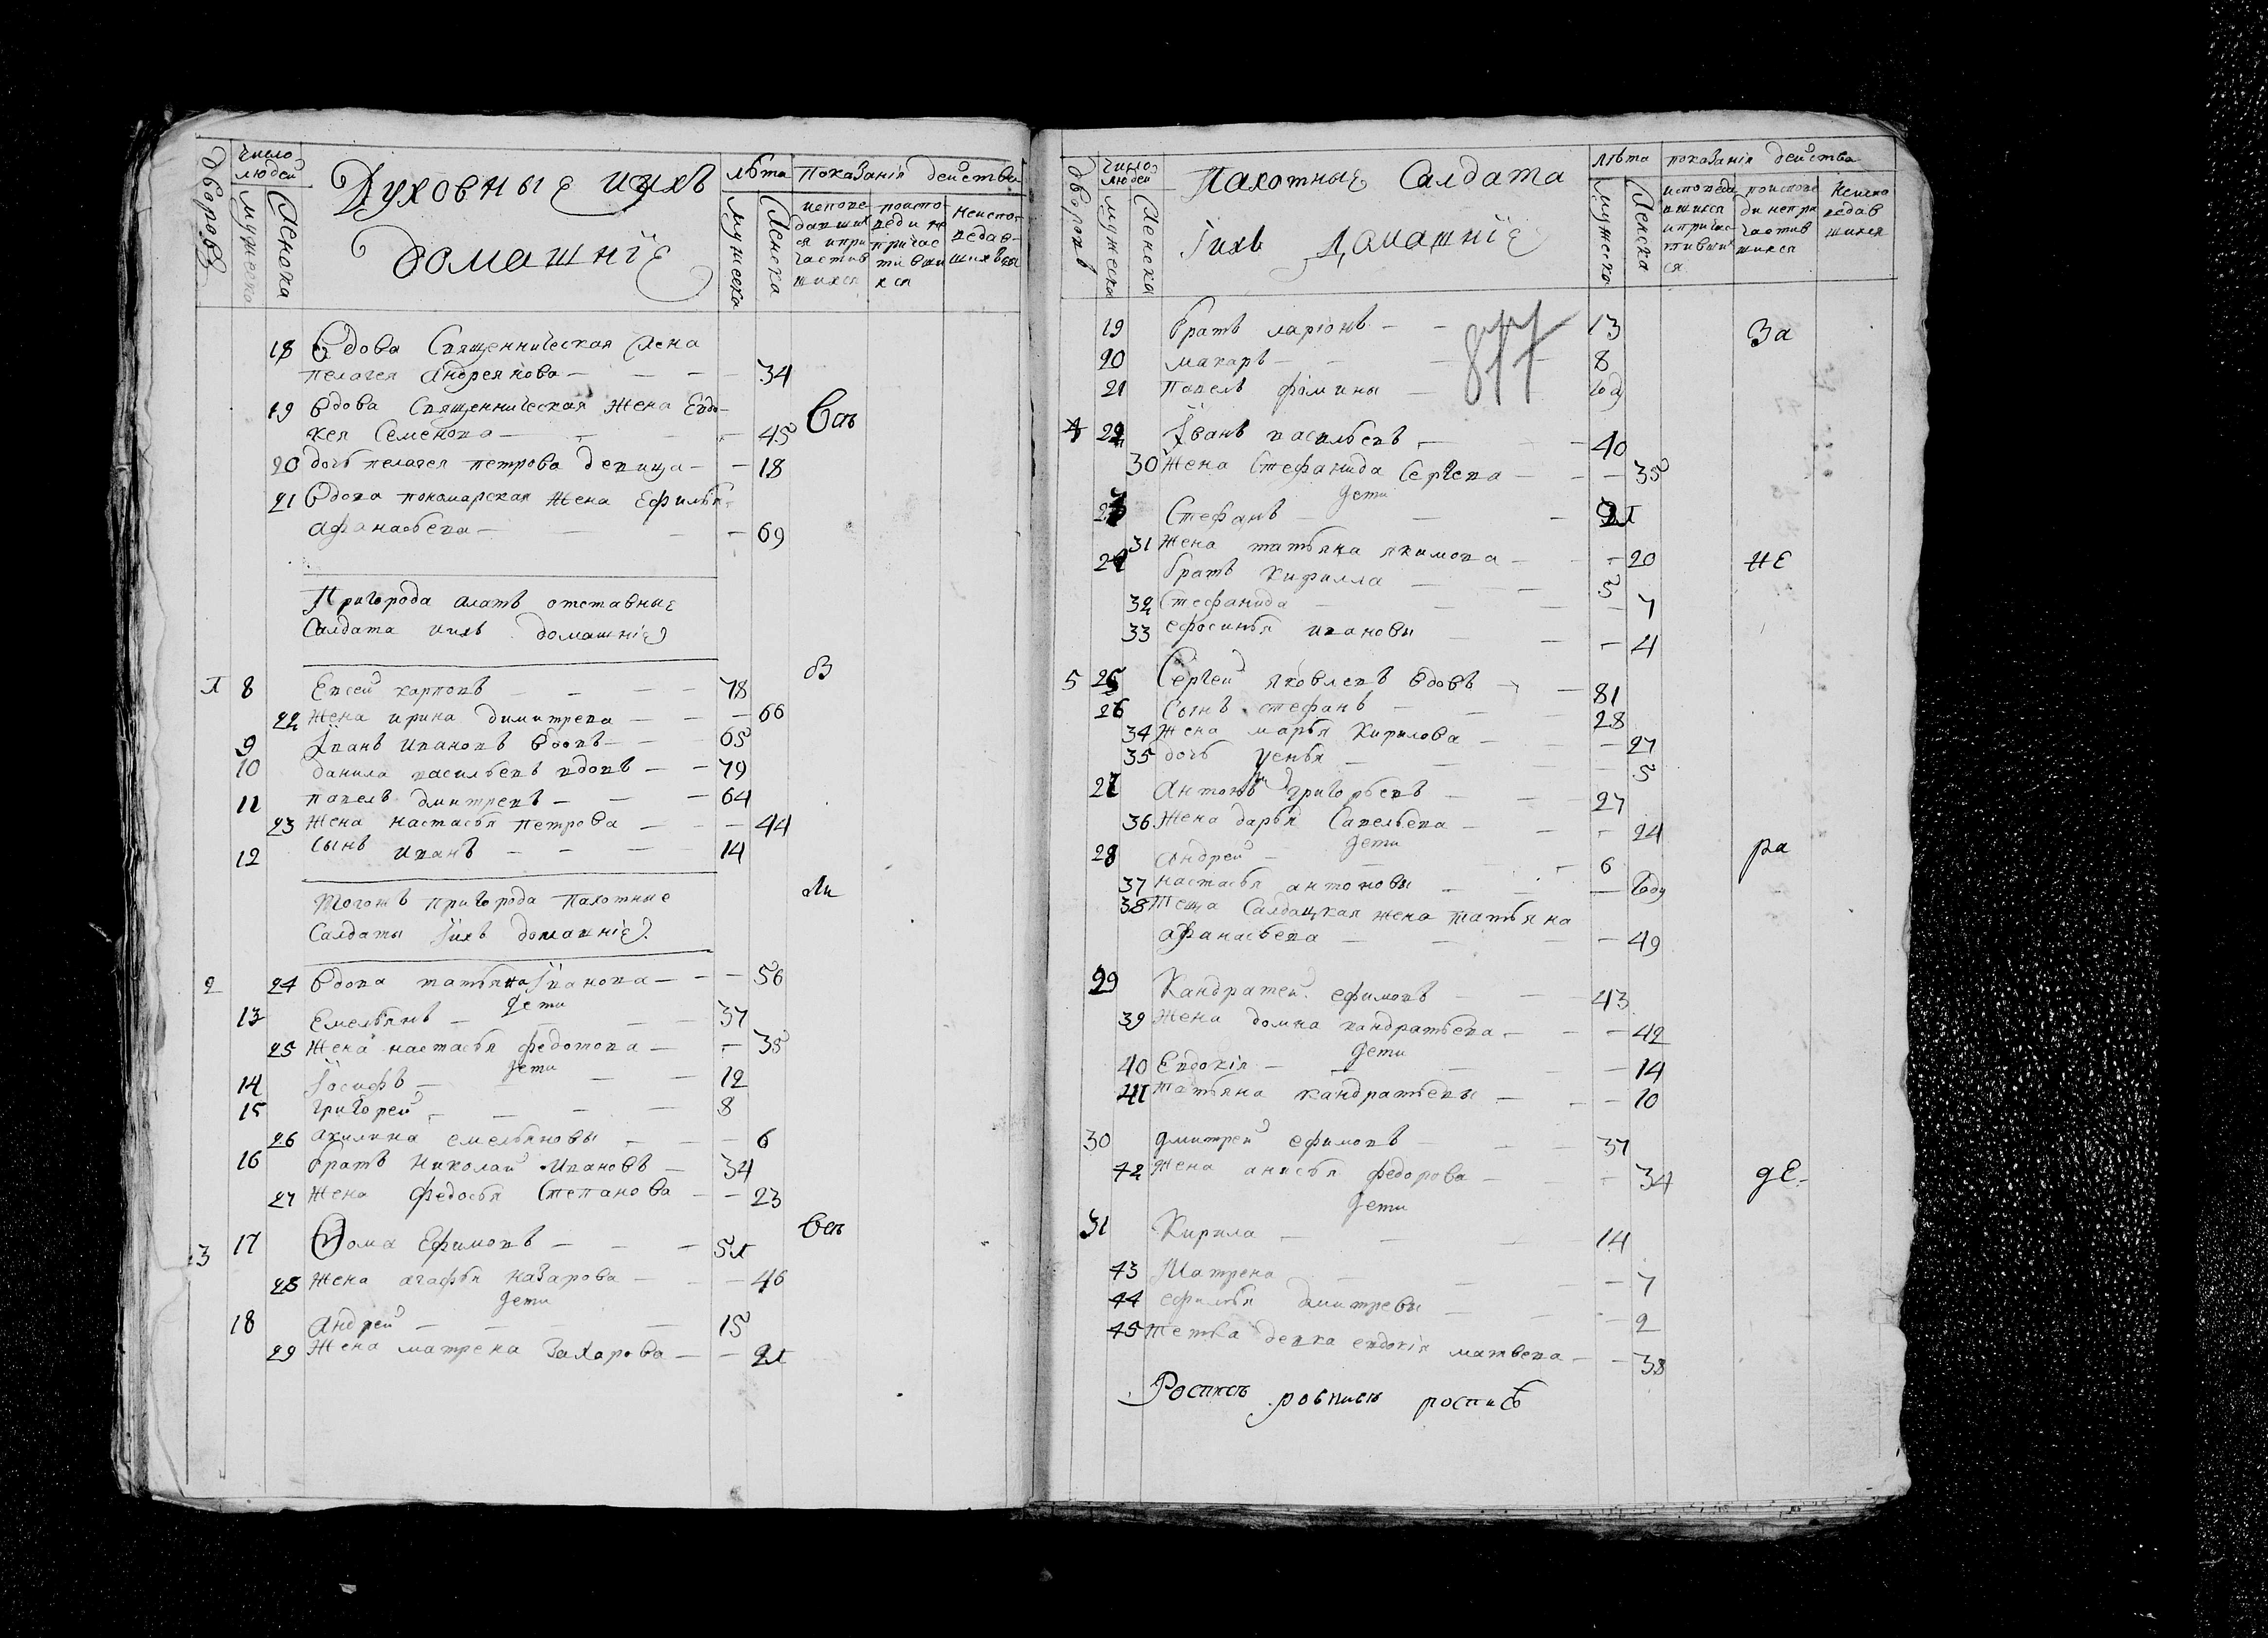 Дворовъ
Число людей
мужеска
Женска
Духовные ихъ
домашнiе
лѣта
мужеска
женска
Показанiя действа
исповедавшихся и причастившихся
поисповеди не причастившихся
неисповедавшихся
18 Вдова Священническая Жена
пелагея андреянова — 34
19 вдова Священническая Жена Евдо-
кея Семенова — 45
Всъ
20 дочь пелагея петрова девица — 18
21 Вдова пономарская Жена Ефимья
афанасьева — 69
Пригорода алатъ отставные
Салдата ихъ домашнiе
1 8 Евсей карповъ — 78
В
22 Жена ирина димитрева — 66
9 Iванъ ивановъ вдовъ — 65
10 данила васильевъ вдовъ — 79
11 павелъ дмитревъ — 64
23 Жена настасья петрова — 44
12 сынъ иванъ — 14
Тогожъ пригорода пахотные
Салдаты iихъ домашнiе
Ли
2 24 вдова татьяна Iванова — 56
дети
13 Емельянъ — 37
25 Жена настасья федотова — 38
дети
14 Iосифъ — 12
15 григорей — 8
26 акилина емельяновы — 6
16 братъ Николай Ивановъ — 34
27 Жена федосья Степанова — 23
3 17 Фома Ефимовъ — 51
28 Жена агафья назарова — 46
дети
18 андрей — 15
29 Жена матрена Захарова — 21
Дворовъ
Число людей
мужеска
Женска
Пахотные Салдата
Iихъ Домашнiе
лѣта
мужеска
Женска
показанiя действа
исповедавшихся и причастившихся
поисповеди непричастившихся
Неисповедавшихся
877
19 братъ ларiонъ — 13
За
20 макаръ — 8
21 Павелъ фомины — год
4 22 Iванъ васильевъ — 40
30 Жена Стефанида Сергева — 35
дети
23 Стефанъ — 21
31 Жена татьяна якимова — 20
НЕ
24 братъ Кирилла — 5
32 Стефанида — 7
33 ефросинья ивановы — 4
5 25 Сергей яковлевъ вдовъ — 81
26 Сынъ стефанъ — 28
34 Жена марья Кирилова — 27
35 дочь — 5
27 Антонъ григорьевъ — 27
36 Жена дарья Савельева — 24
дети
28 андрей — 6
ра
37 настасья антоновы — год
38 Теща Салдацкая жена татьяна
афанасьева — 49
29 Кандратей ефимовъ — 43
39 Жена домна кандратьева — 42
дети
40 Евдокiя — 14
41 татьяна кандратьевы — 10
30 дмитрей ефимовъ — 37
42 Жена анисья федорова — 34
дЕ
дети
31 Кирила — 14
43 Матрена — 7
44 ефимья дмитревы — 2
45 тетка девка евдокiя матвева — 38
Роспись роспись роспись